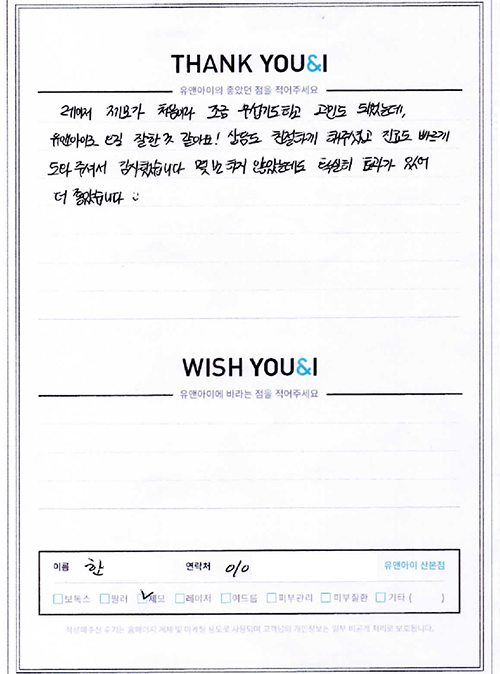 THANK YOU&I
유앤아이의 좋았던 점을 적어주세요
레이저 제모가 처음이라 조금 무섭기도하고 고민도 되었는데,
유앤아이로 오길 잘한것 같아요! 상담도 친절하게 해주셨고 진료도 빠르게
도와 주셔서 감사했습니다 몇 번 하지 않았는데도 확실히 효과가 있어
더 좋았습니다
WISH YOU&I
유앤아이에 바라는 점을 적어주세요
이름 한 연락처 010 유앤아이 산본점
보톡스 필러 제모 레이저 여드름 피부관리 피부질환 기타 ( )
작성해주신 후기는 홈페이지 게재 및 마케팅 용도로 사용되며 고객님의 개인정보는 일부 비공개 처리로 보호됩니다.